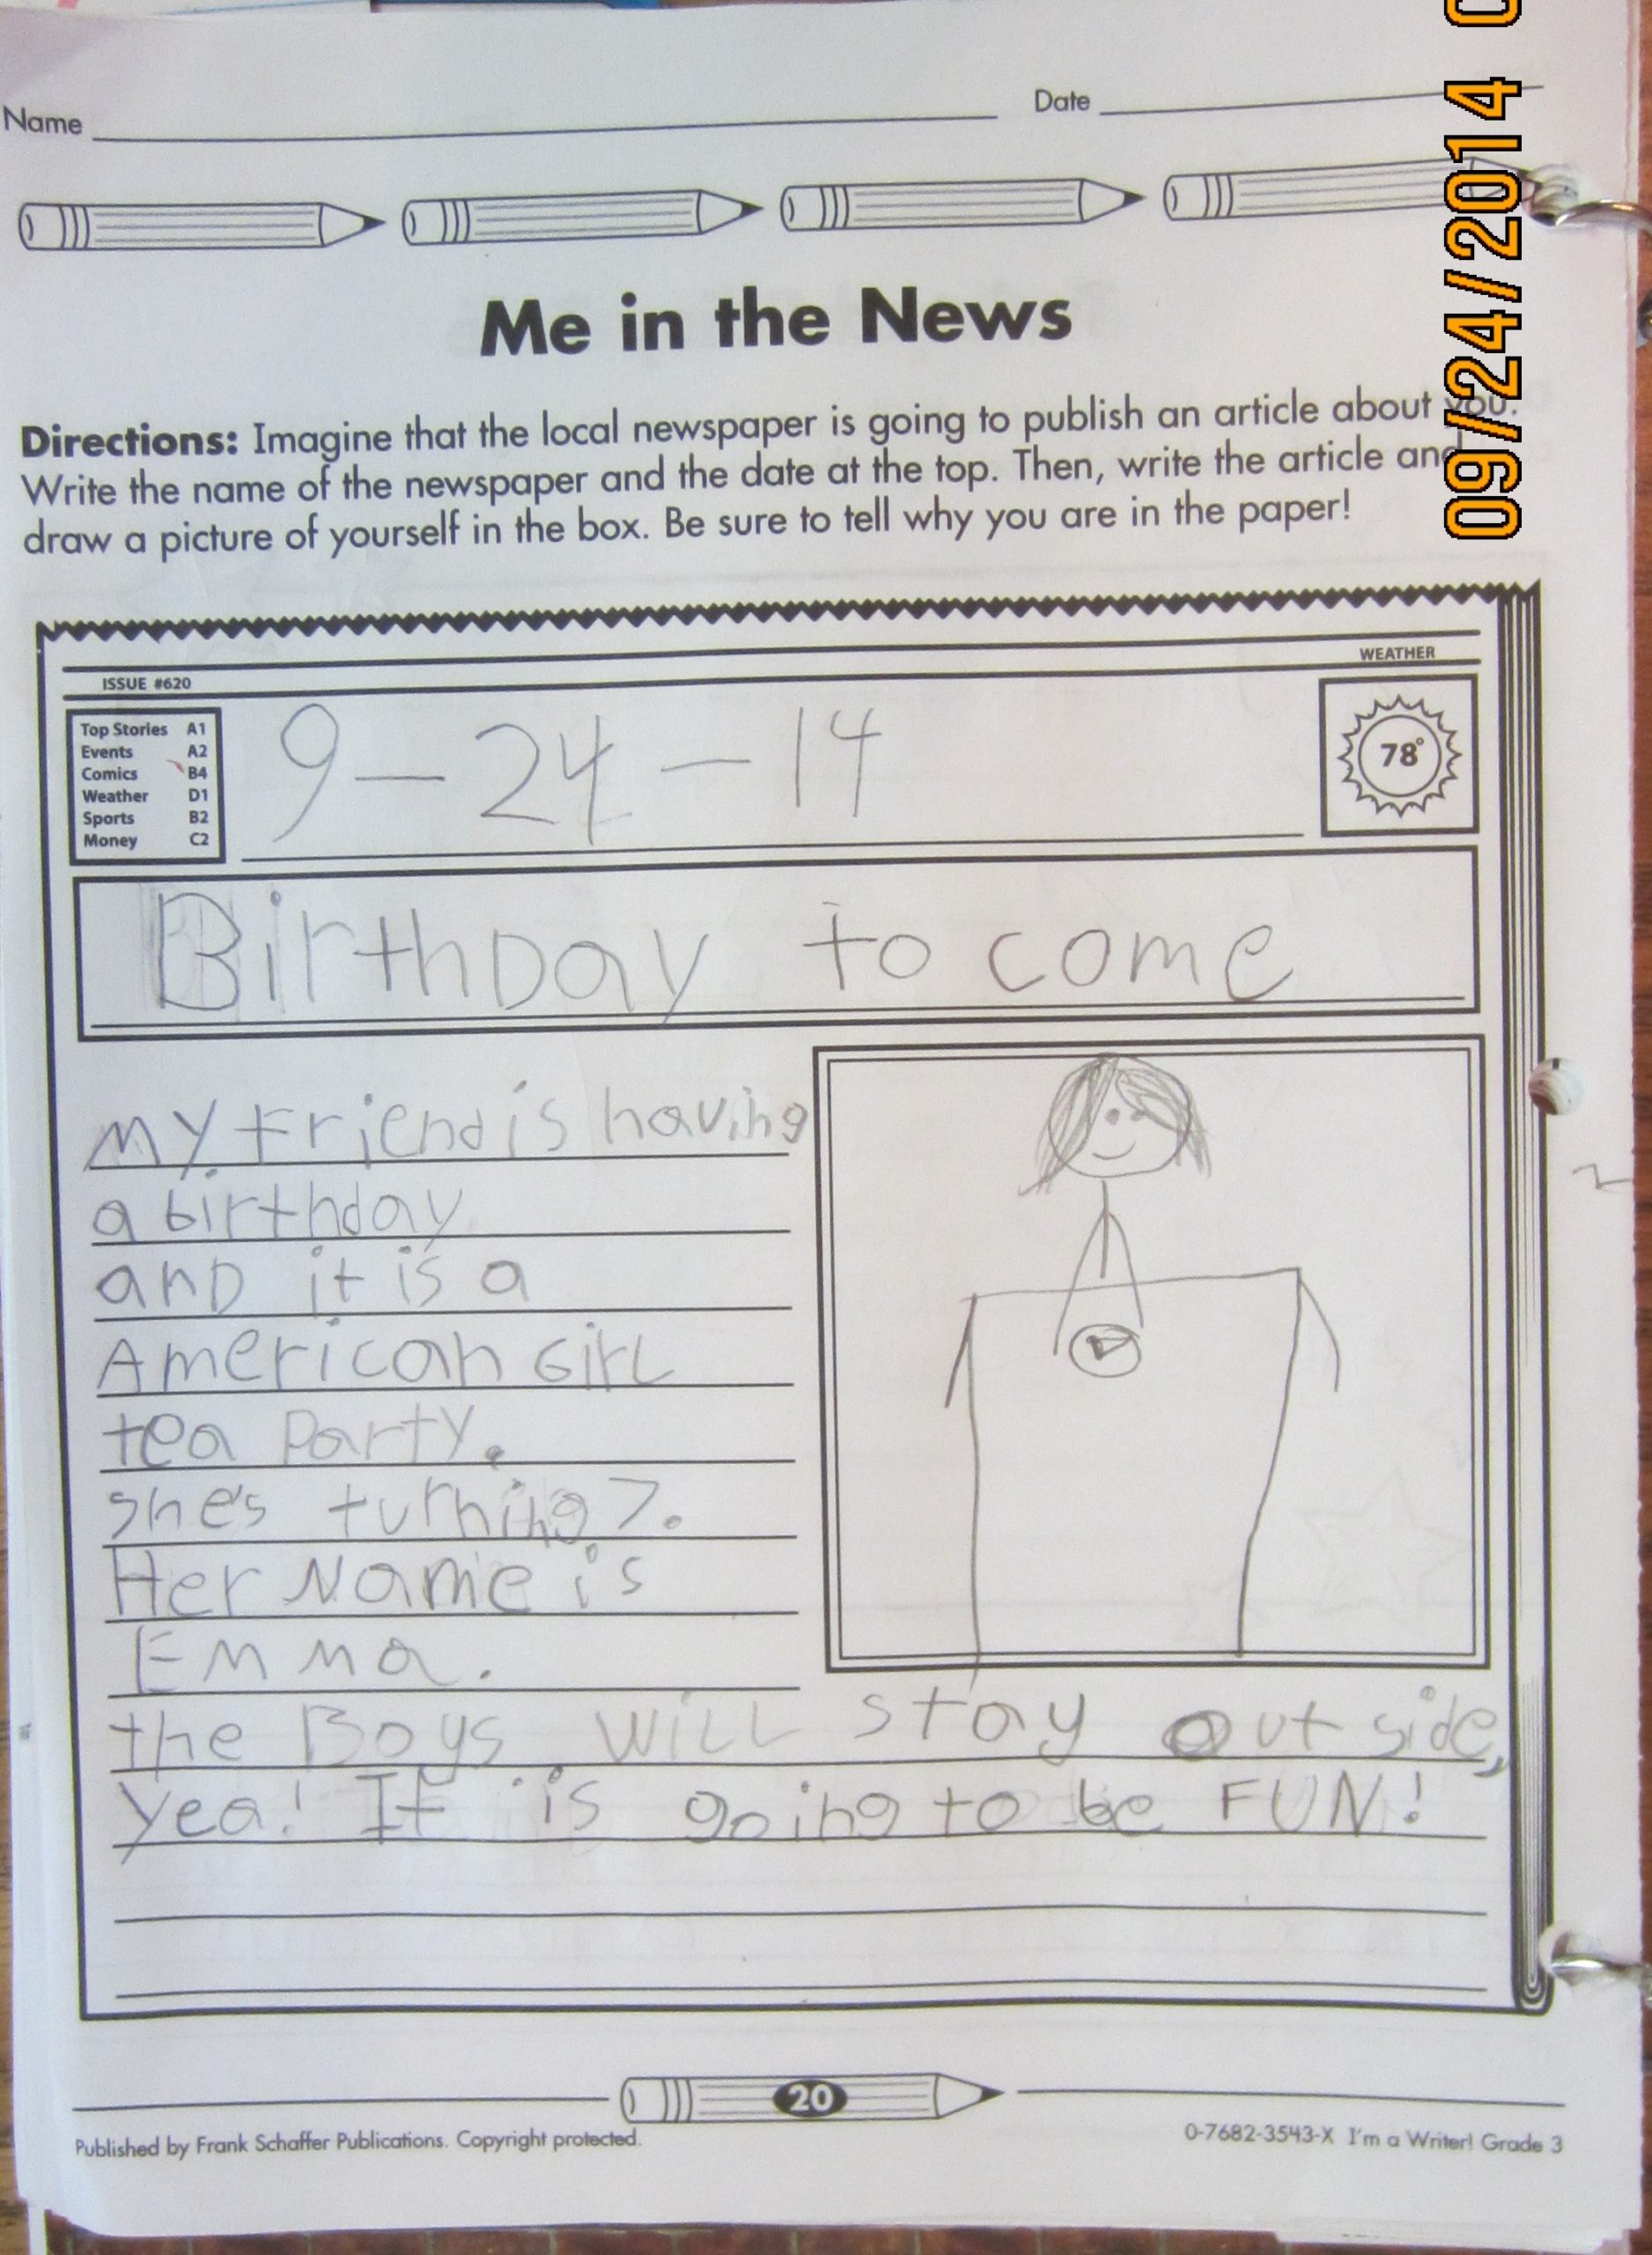 09/24/2014 0
Name
Date
Me in the News
Directions: Imagine that the local newspaper is going to publish an article about you.
Write the name of the newspaper and the date at the top. Then, write the article and
draw a picture of yourself in the box. Be sure to tell why you are in the paper!
ISSUE #620
WEATHER
Top Stories A1
Events A2
Comics B4
Weather D1
Sports B2
Money C2
9-24-14
78°
BirthDay to come
My Friend is having
a birthday
anD it is a
American GirL
tea Party.
she's turning 7.
Her Name is
Emma.
the Boys WiLL stay out side,
yea! It is going to be FUN!
20
Published by Frank Schaffer Publications. Copyright protected.
0-7682-3543-X I'm a Writer! Grade 3